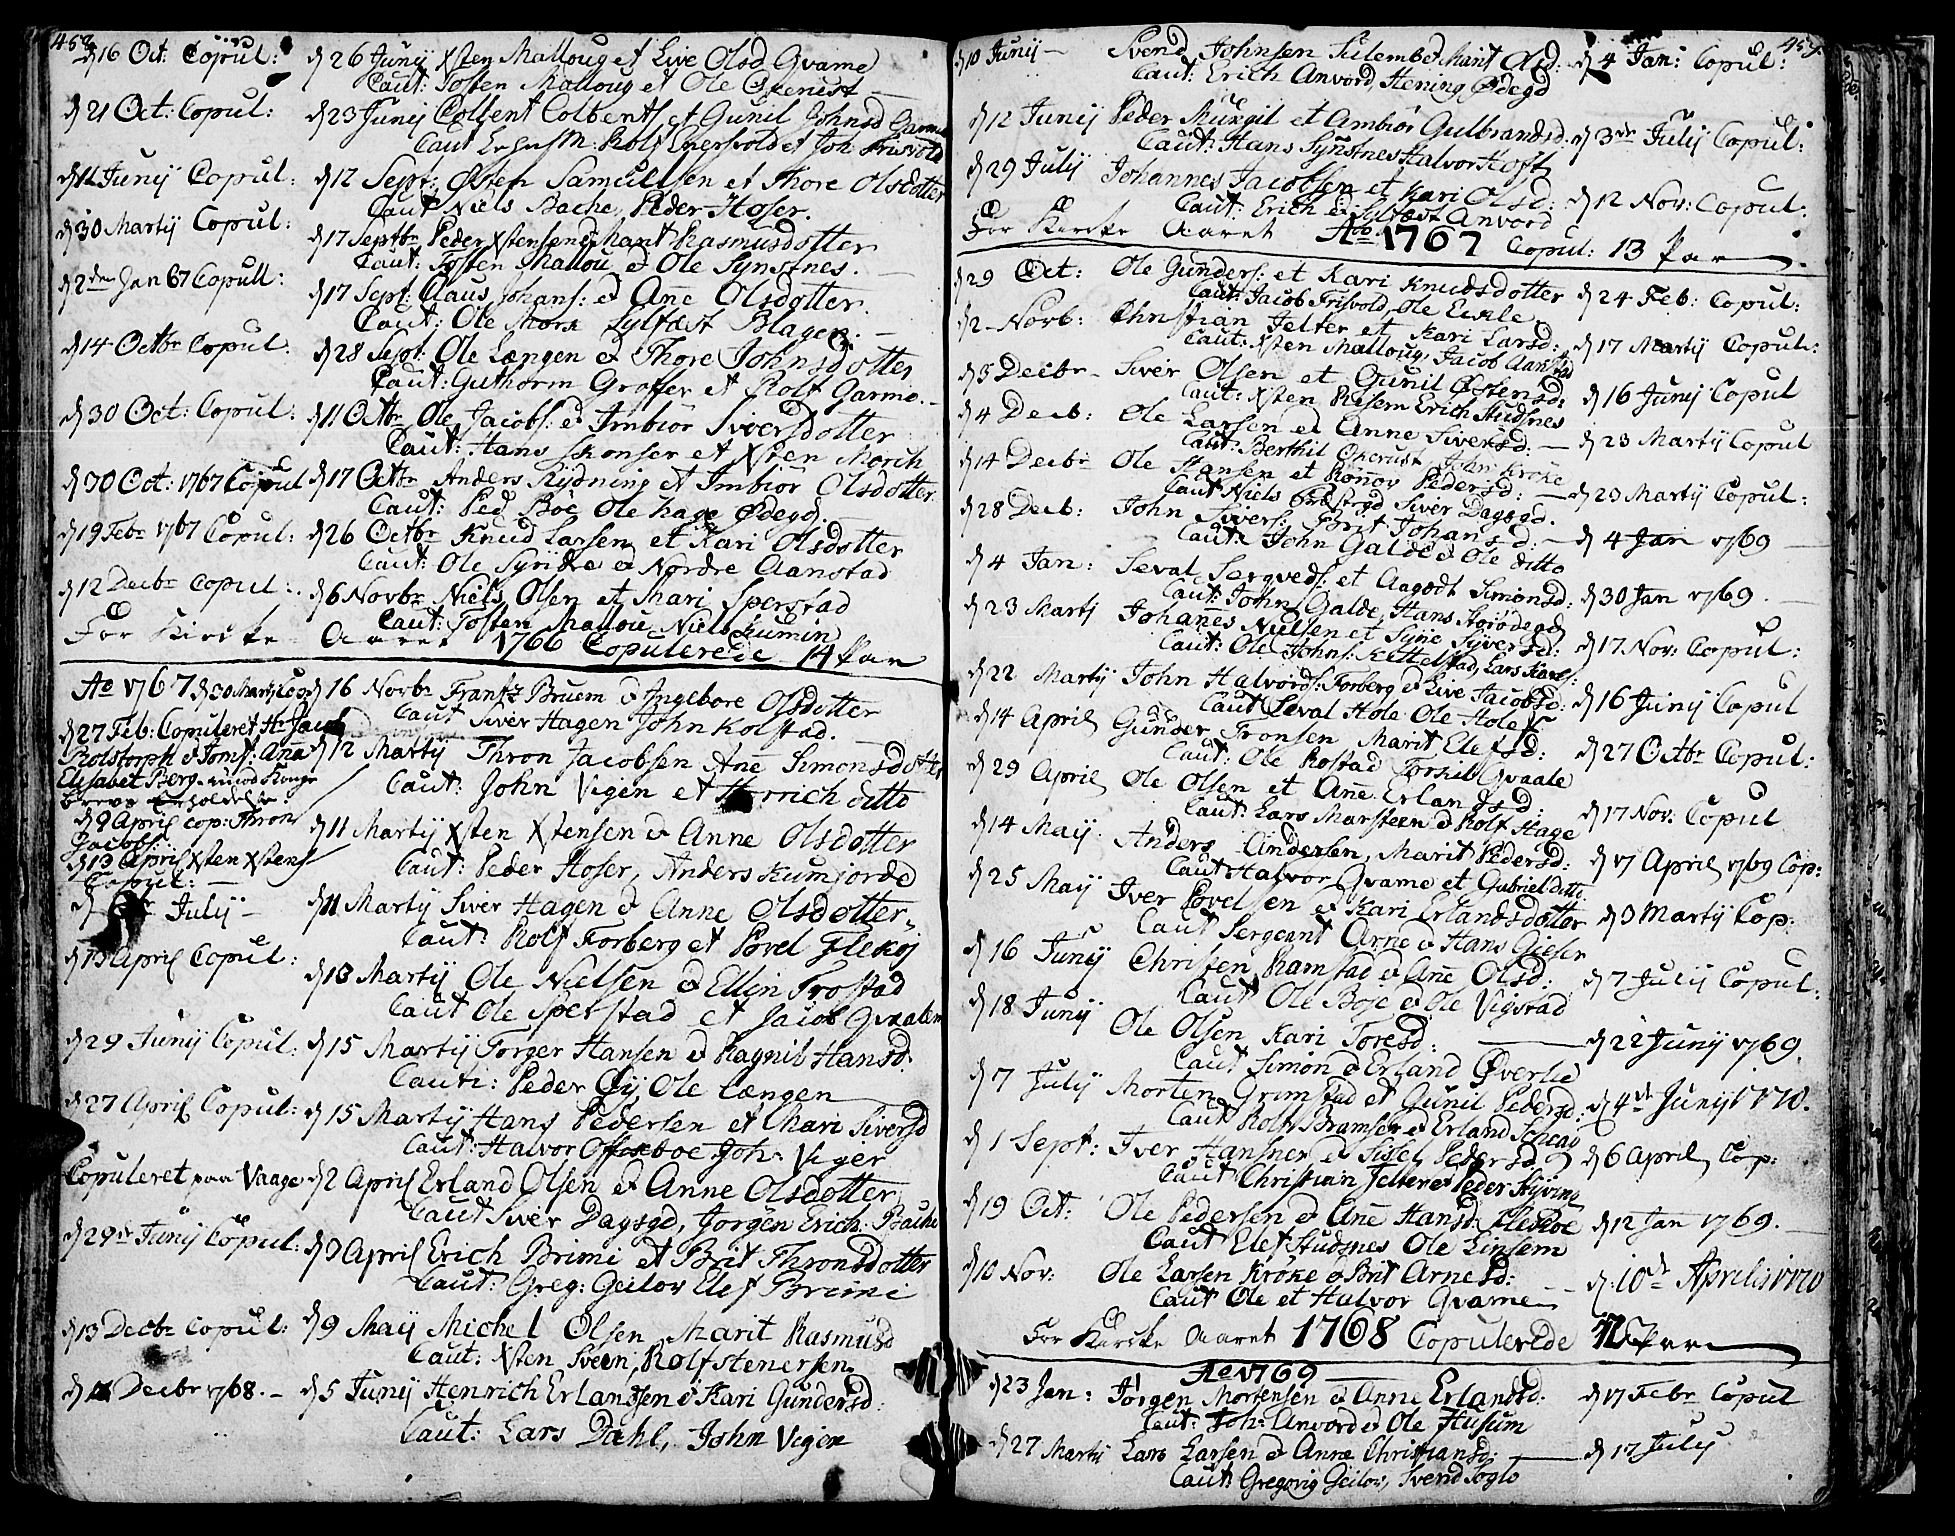 458
d 16 Oct: Copul: d 26 Junij Xsten Malloug et Live Olsd Qvame
Caut: Tosten Malloug et Ole
d 21 Oct: Copul: d 23 Junij Colbent Colbents: et Gunil Johnsd Garmo
Caut M: Rolf et Joh Frisvold
d 11 Junij Copul: d 12 Sept: Østen Samuelsen et Thore Olsdotter
Caut Niels Bache, Peder Hoser.
d 30 Martij Copul: d 17 Septbr Peder Xstensen Marit Rasmusdotter
Caut: Tosten Mallou et Ole Synstnes.
d 2den Jan 67 Copull: d 17 Sept: Claus Johans: et Ane Olsdotter
Caut: Ole Mork Sylfæst Blager.
d 14 Octbr Copul. d 28 Sept: Ole Længen et Thore Johnsdotter
Caut: Guthorm Graffer et Rolf Garmo.
d 30 Oct: Copul: d 11 Octbr Ole Jacobs: et Imbiör Siversdotter
Caut: Hans Skonser et Xsten Morck
d 30 Oct: 1767 Copul d 17 Octbr Anders Rydning et Imbiör Olsdotter
Caut: Ped Böe Ole hage Ødegd
d 19 Febr 1767 Copul: d 26 Octbr Knud Larsen et Kari Olsdotter
Caut: Ole Synstnes et Nordre Aanstad
d 12 Decbr Copul: d 6 Novbr Niels Olsen et Mari Sperstad
Caut: Tosten Mallou Niels Kumin
For Kircke Aaret 1766 Copulerede 14 Par
Ao 1767 d 30 Martij Cop d 16 Novbr Frantz Bruem et Ingebore Olsdotter
Caut Siver Hagen John Kolstad.
d 27 Feb: Copuleret Hr Jacob
Rolstorph et Jomf: Ana
Elisabet Berg
d 12 Martij Thron Jacobsen Ane Simonsdotter
Caut: John Vigen et ditto
d 9 April cop: Thron
Jacobs:
d 13 April Xsten Xstens
Copul:
d 11 Martij Xsten Xstensen et Anne Olsdotter
Caut: Peder Hoser, Anders Kumjorde
d July d 11 Martij Siver Hagen et Anne Olsdotter
Caut: Rolf Forberg et Povel Flekøj
d 13 April Copul: d 13 Martij Ole Nielsen et Ellin Trostad
Caut Ole Sperstad et Jacob Qvalem
d 29 Junij Copul: d 15 Martij Torger Hansen et Ragnil Hansd:
Caut: Peder Øij Ole Længen
d 27 April Copul: d 15 Martij Hans Pedersen et Mari Siversd
Caut: Halvor Offerboe Joh: Viger
Copuleret paa Vaage d 2 April Erland Olsen et Anne Olsdotter
Caut Siver Dagsgd, Jorgen Erich: Bache
d 29de Junij Copul: d 9 April Erich Brimi et Brit Thronsdotter
Caut: Greg: Geilov Elef Brimi
d 13 Decbr Copul: d 9 Maij Michel Olsen Marit Rasmusd
Caut: Xsten Sveen, Rolf Stenersen
d 12 Decbr 1768. d 5 Junij Henrich Erlandsen et Kari Gundersd:
Caut: Lars Dahl, John Vigen
459
d 10 Junij Svend Johnsen et Marit Olsd: d 4 Jan: Copul:
Caut: Erich Anvord, Hening Ødegd
d 12 Junij Peder et Ambiör Gulbrandsd: d 3de Julij Copul:
Caut: Hans Synstnes Halvor Hoft
d 29 July Johannes Jacobsen et Kari Olsd: d 12 Nov: Copul:
Caut: Erich et Sylfæst Anvord
For Kircke Aaret Ao 1767 Copul: 13 Par
d 29 Oct: Ole Gunders: et Kari Knudsdotter d 24 Feb: Copul:
Caut: Jacob Frisvold, Ole Eckle
d 2 Novb: Christian Jelter et Kari Larsd: d 17 Martij Copul:
Caut: Xsten Malloug, Jacob Aanstad
d 3 Decbr Siver Olsen et Gunil Østensd: d 16 Junij Copul
Caut: Xsten Risem Erich Studsnes
d 4 Decb: Ole Larsen et Anne Siversd: d 23 Martij Copul
Caut: Berthil John Kröke
d 14 Decbr Ole Hansen et Rönnov Pedersd: d 23 Martij Copul:
Caut Niels Siver Dagsgd.
d 28 Decb: John Sivers: Brit Johansd: d 4 Jan 1769
Caut: John Galde et Ole ditto
d 4 Jan: Seval Sergveds: et Aagodt Simonsd: d 30 Jan 1769.
Caut: John Galde, Hans
d 23 Martij Johanes Nielsen et Syne Syversd: d 17 Nov: Copul:
Caut: Ole Johns: Kittelstad, Lars
d 22 Martij John Halvords: Forberg et Live Jacobsd: d 16 Junij Copul
Caut Seval Hole Ole Hole
d 14 April Gunder Tronsen Marit Elefsd: d 27 Octbr Copul:
Caut: Ole Rostad Torkil Qvaale
d 29 April Ole Olsen et Ane Erlandsd: d 17 Nov: Copul
Caut: Lars Marsteen et Rolf Hage
d 14 Maij Anders Andersen, Marit Pedersd: d 17 April 1769 Cop:
Caut Halvor Qvame et Gabriel ditto
d 25 Maij Iver Povelsen et Kari Erlandsdotter d 3 Martij Cop:
Caut Sergeant Arne et Hans Gieser
d 16 Junij Christen Ramstad et Ane Olsd: d 7 Julij Copul:
Caut Ole Boje et Ole Vigstad
d 18 Junij Ole Olsen Kari Toresd: d 22 Junij 1769.
Caut Simon et Erland Øverlie
d 7 July Morten Grimstad et Gunil Pedersd: d 4de Junij 1770.
Caut Rolf Bramser et Erland
d 1 Sept: Iver Hansner et Sissel Pedersd: d 6 April Cop:
Caut Christian Jelter et Peder
d 19 Oct: Ole Pedersen et Ane Hansd: Flekøe d 12 Jan 1769.
Caut Elef Studsnes Ole Linsem
d 10 Nov: Ole Larsen Kröke et Brit Arnesd: d: 10de Aprilis 1770
Caut Ole et Halvor Qvame
For Kircke Aaret 1768 Copulerede 12 Par
Ao 1769
d 23 Jan: Jörgen Mortensen et Anne Erlandsd: d 17 Febr Copul
Caut: Joh: Anvord et Ole Husum
d 27 Martij Lars Larsen et Anne Christiansd: d 17 July
Caut: Gregorig Geilov, Svend Soglo